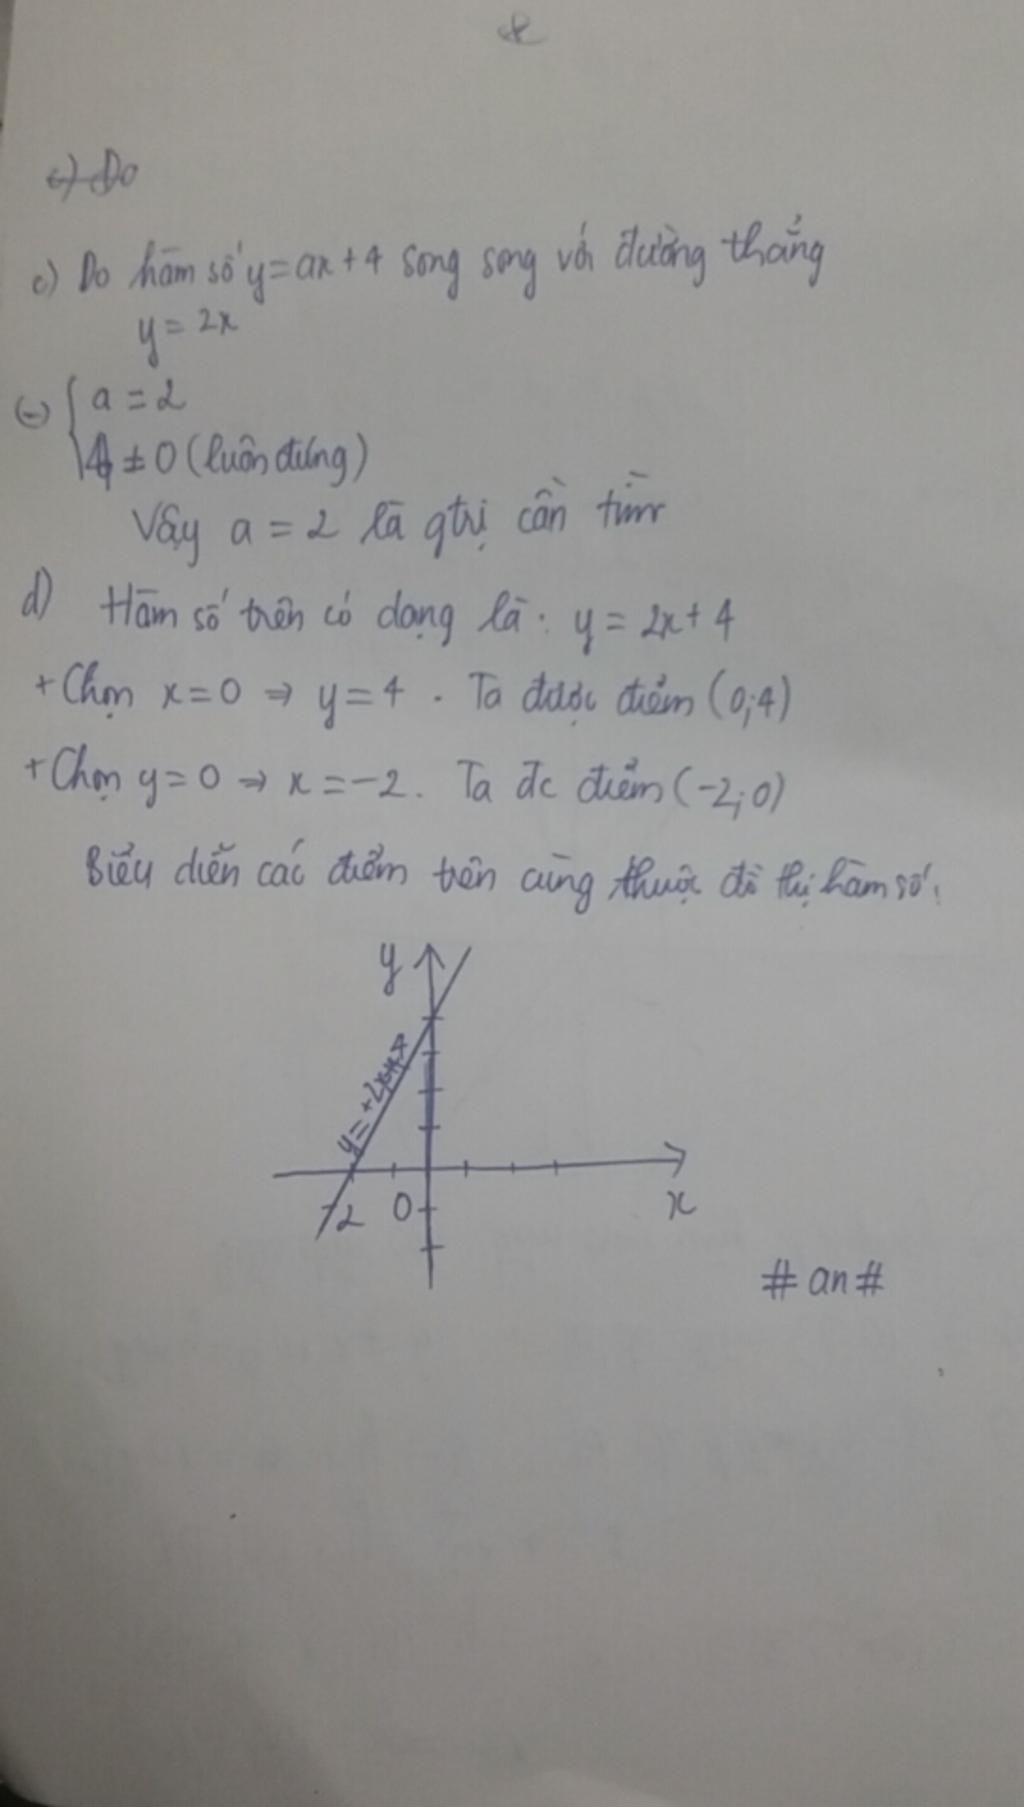 c) Do
c) Do hàm số y=ax+4 song song với đường thẳng
y = 2x
(=) { a = 2
4 ≠ 0 (luôn đúng)
Vậy a = 2 là gtrị cần tìm
d) Hàm số trên có dạng là: y = 2x+4
+ Chọn x=0 => y=4 . Ta được điểm (0;4)
+ Chọn y=0 => x=-2. Ta đc điểm (-2;0)
Biểu diễn các điểm trên cùng thuộc đồ thị hàm số:
y
y=+2x+4
-2 0 x
#an#